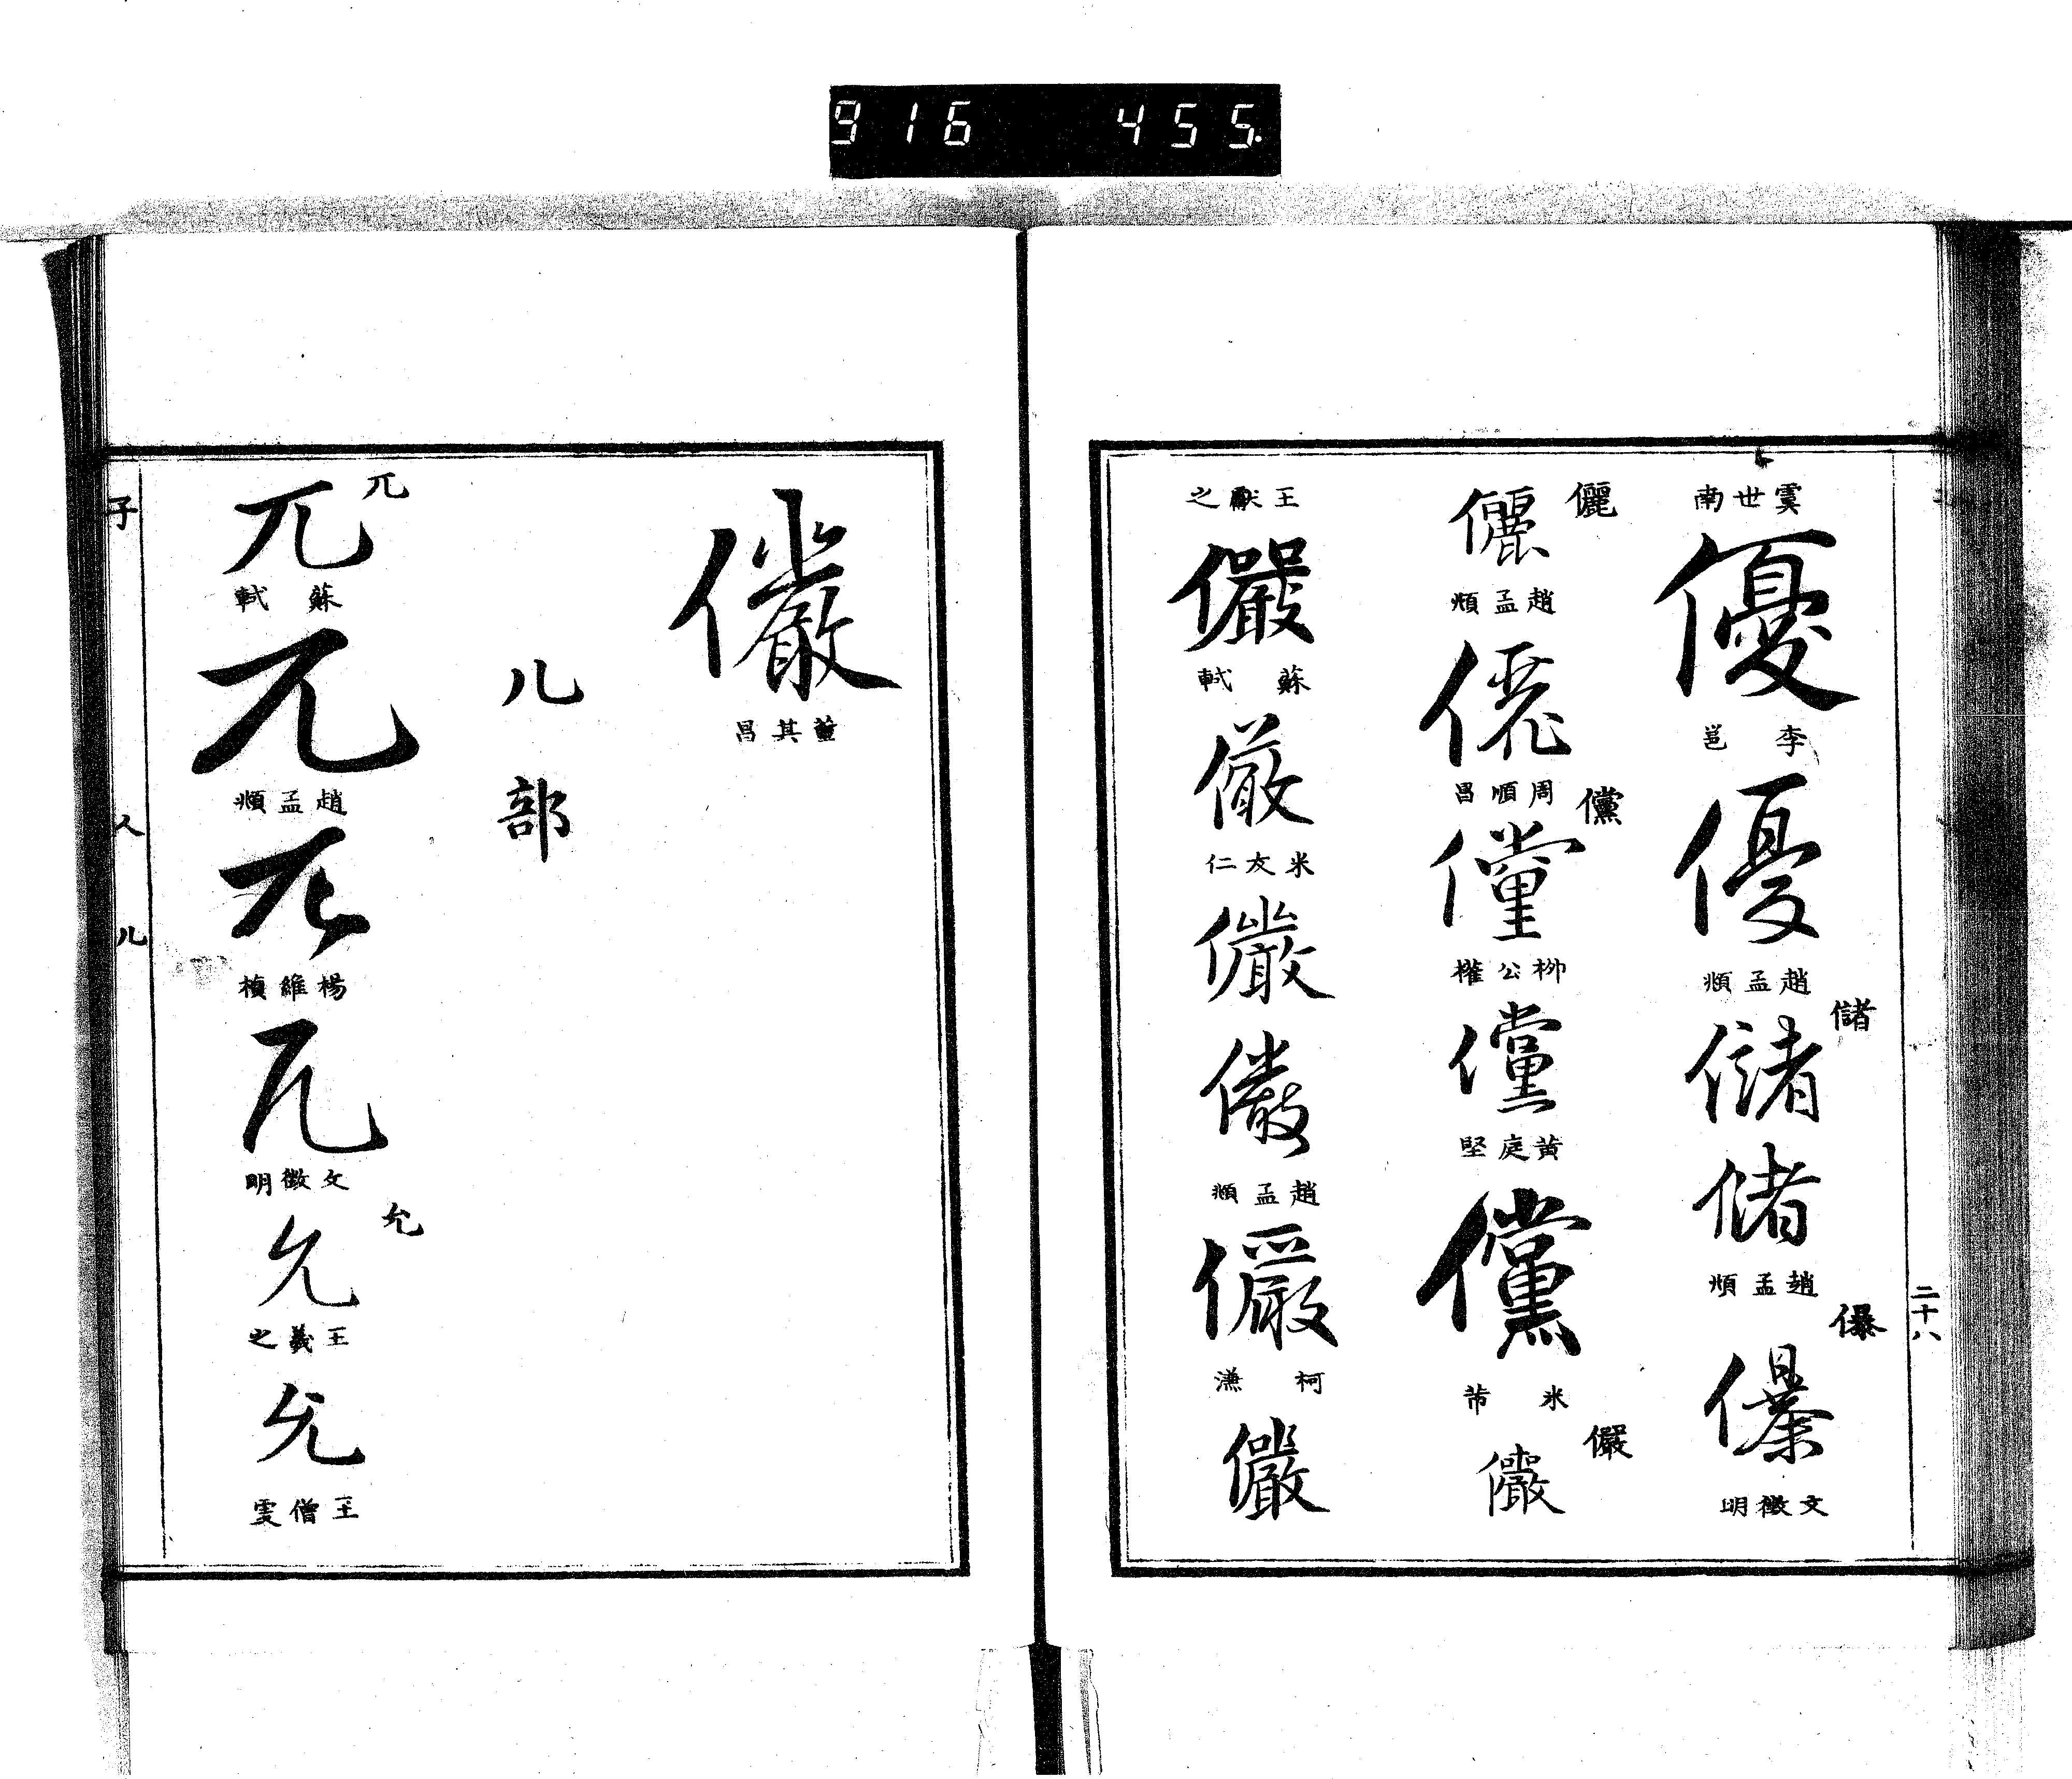 916 455
虞世南
優
李邕
優
趙孟頫
儲
儲
儲
趙孟頫
儤
儤
文徵明
二十八
儷
儷
趙孟頫
儷
周順昌
儻
儻
柳公權
儻
黄庭堅
儻
米芾
儼
儼
王獻之
儼
蘇軾
儼
米友仁
儼
儼
趙孟頫
儼
柯潓
儼
儼
董其昌
儿部
兀
兀
蘇軾
兀
趙孟頫
兀
楊維楨
兀
文徵明
允
允
王羲之
允
王僧虔
子
人
儿